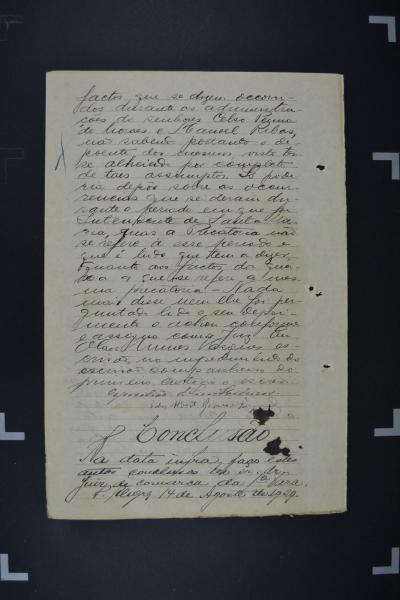 factos que se dizem occorri-
dos durante as administra-
ções do senhores Celso Penna
de Moraes e Manoel Ribas,
não sabendo portanto o de-
poente dos mesmos visto ter-
se alheiado por completo
de taes assumptos. Só pode-
ria depor sobre as occor-
rencias que se deram du-
rante o periodo em que foi
Intendente de Santa Ma-
ria, mas a Precatoria não
se refere a esse periodo e
que é tudo que tem a dizer
quanto aos factos da
a que se refere a mes-
ma precatoria. - Nada
mais disse nem lhe foi per-
guntado lido o seu depoi-
mento o achou conforme
e assigna com o Juiz. Eu
escri-
vão, no impedimento do
escrivão companheiro do
primeiro cartorio o escrevi
Conclusão
Na data infra, faço estes
autos conclusos ao sr. Dr.
Juiz de comarca da 1ª Vara.
P. Alegre, 14 de Agosto de 1929.